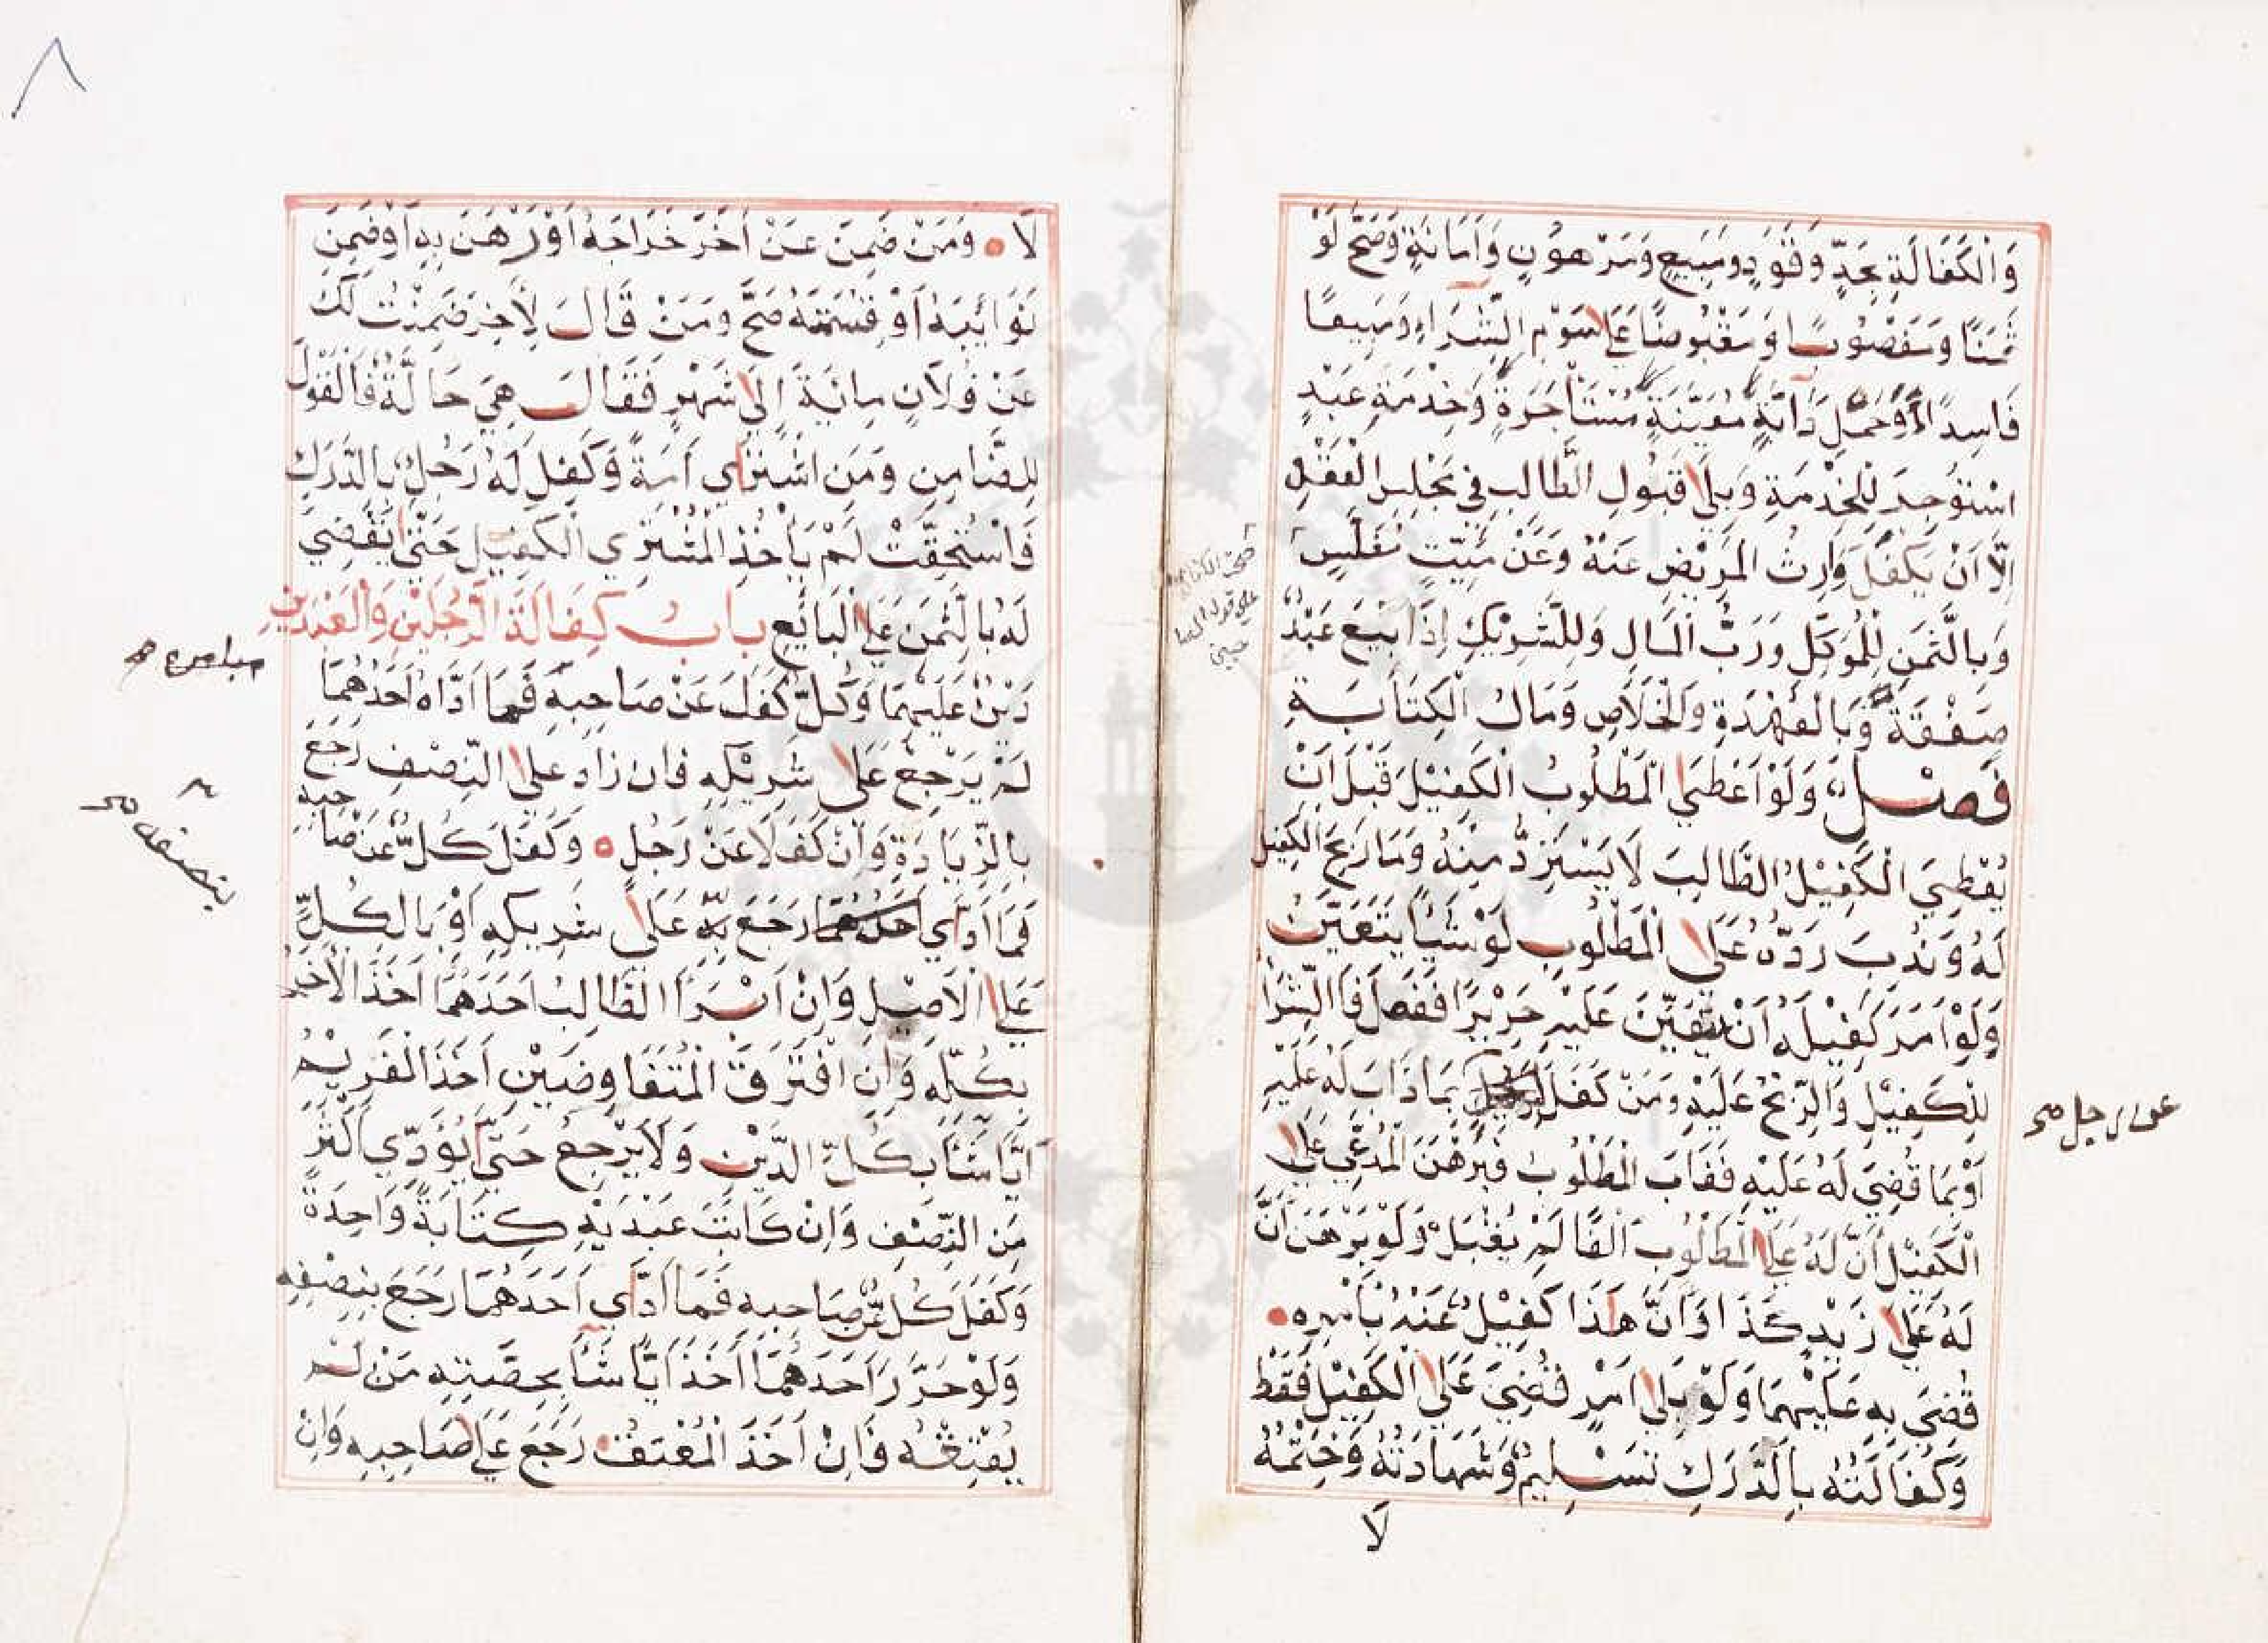 وَالْكَفَالَةِ بِحَدٍّ وَقَوَدٍ وَمَبِيعٍ وَمَرْهُوْنٍ وَأَمَانَةٍ وَصَحَّ لَوْ
ثَمَنًا وَمَغْصُوْبًا وَمَقْبُوضًا عَلَى سَوْمِ الشِّرَاءِ وَمَبِيعًا
فَاسِدًا وَحَمْلِ دَابَّةٍ مُعَيَّنَةٍ مُسْتَأْجَرَةٍ وَخِدْمَةِ عَبْدٍ
اسْتُوْجِرَ لِلْخِدْمَةِ وَبِلَا قَبُولِ الطَّالِبِ فِي مَجْلِسِ الْعَقْدِ
إِلَّا اَنْ يَكْفُلَ وَارِثُ الْمَرِيْضِ عَنْهُ وَعَنْ مَيِّتٍ مُفْلِسٍ
وَبِالثَّمَنِ لِلْمُوَكِّلِ وَرَبِّ الْمَالِ وَلِلشَّرِيْكِ إِذَا بِيْعَ عَبْدٌ
صَفْقَةً وَبِالْعُهْدَةِ وَالْخَلَاصِ وَمَالُ الْكِتَابَةِ
فَصْلٌ وَلَوْ اَعْطَى الْمَطْلُوبُ الْكَفِيْلَ قَبْلَ اَنْ
يُعْطِيَ الْكَفِيْلُ الطَّالِبَ لَا يَسْتَرِدُّ مِنْهُ وَمَا رَبِحَ الْكَفِيْلُ
لَهُ وَنُدِبَ رَدُّهُ عَلَى الْمَطْلُوبِ لَوْ شَيْأً يَتَعَيَّنُ
وَلَوْ اَمَرَ كَفِيْلَهُ اَنْ يَتَعَيَّنَ عَلَيْهِ حَرِيْرًا فَفَعَلَ فَالشِّرَا
لِلْكَفِيْلِ وَالرِّبْحُ عَلَيْهِ وَمَنْ كَفَلَ بِمَا ذَابَ لَهُ عَلَيْهِ
عن رجل صح
اَوْ بِمَا قُضِيَ لَهُ عَلَيْهِ فَغَابَ الْمَطْلُوبُ فَبَرْهَنَ الْمُدَّعِي عَلَى
الْكَفِيْلِ أَنَّ لَهُ عَلَى الْمَطْلُوبِ اَلْفًا لَمْ يُقْبَلْ وَلَوْ بَرْهَنَ اَنَّ
لَهُ عَلَى زَيْدٍ كَذَا وَاَنَّ هَذَا كَفِيْلٌ عَنْهُ بِاَمْرِهِ
قُضِيَ بِهِ عَلَيْهِمَا وَلَوْ بِلَا اَمْرٍ قُضِيَ عَلَى الْكَفِيْلِ فَقَطْ
وَكَفَالَتُهُ بِالدَّرَكِ تَسْلِيمٌ وَشَهَادَتُهُ وَخَتْمُهُ
لَا
٨
لَا وَمَنْ ضَمِنَ عَنْ اَخَرَ خَرَاجَهُ اَوْ رَهَنَ بِهِ اَوْ ضَمِنَ
نَوَائِبَهُ اَوْ قِسْمَتَهُ صَحَّ وَمَنْ قَالَ لِأَخِرَ ضَمِنْتُ لَكَ
عَنْ فُلَانٍ مِائَةً إِلَى شَهْرٍ فَقَالَ هِيَ حَالَّةٌ فَالْقَوْلُ
لِلضَّامِنِ وَمَنِ اشْتَرَى اَمَةً وَكَفَلَ لَهُ رَجُلٌ بِالدَّرَكِ
فَاسْتُحِقَّتْ لَمْ يَأْخُذِ الْمُشْتَرِي الْكَفِيْلَ حَتَّى يُقْضِيَ
لَهُ بِالثَّمَنِ عَلَى الْبَائِعِ بَابُ كَفَالَةِ الرَّجُلَيْنِ وَالْعَبْدَيْنِ
دَيْنٌ عَلَيْهِمَا وَكُلٌّ كَفَلَ عَنْ صَاحِبِهِ فَمَا اَدَّاهُ اَحَدُهُمَا
لَمْ يَرْجِعْ عَلَى شَرِيْكِهِ فان زاد على النِّصْفِ رَجَعَ
بِالزِّيَادَةِ وَاِنْ كَفَلَا عَنْ رَجُلٍ وَكَفَلَ كُلٌّ عَنْ صَاحِبِهِ
فَمَا اَدَّى اَحَدُهُمَا رَجَعَ بِهِ عَلَى شَرِيكِهِ اَوْ بِالْكُلِّ
بنصفه صح
عَلَى الْاَصِيْلِ وَاِنْ اَبْرَأَ الطَّالِبُ اَحَدَهُمَا اَخَذَ الْأَخَرَ
بِكُلِّهِ وَاِنِ افْتَرَقَ الْمُتَفَاوِضَيْنِ اَخَذَ الْغَرِيْمُ
اَيًّا شَاءَ بِكُلِّ الدَّيْنِ وَلَا يَرْجِعُ حَتَّى يُؤَدِّيَ اَكْثَرَ
مِنَ النِّصْفِ وَاِنْ كَاتَبَ عَبْدَيْهِ كِتَابَةً وَاحِدَةً
وَكَفَلَ كُلٌّ عَنْ صَاحِبِهِ فَمَا اَدَّى اَحَدَهُمَا رَجَعَ بِنِصْفِهِ
وَلَوْ حَرَّرَ اَحَدَهُمَا اَخَذَ اَيًّا شَاءَ بِحِصَّتِهِ مَنْ لَمْ
يُعْتِقْهُ فَاِنْ اَخَذَ الْمُعْتَقُ رَجَعَ عَلَى صَاحِبِهِ وَاِنْ